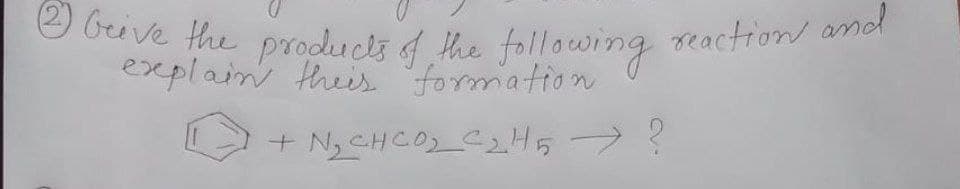 ② Give the products of the following reaction and
explain their formation
+ N₂CHCO₂C₂H₅ → ?